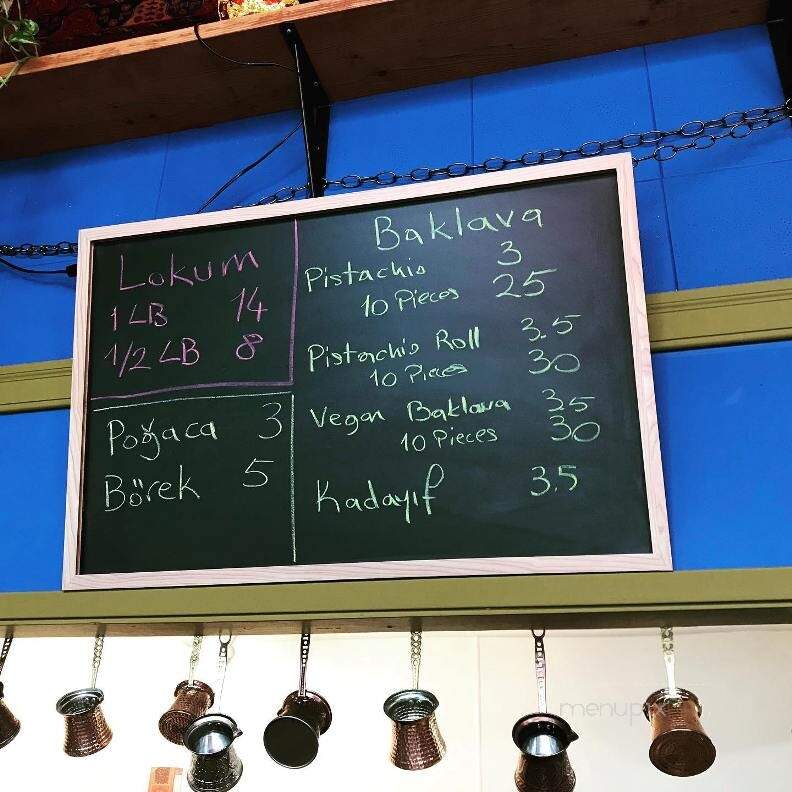 Lokum
1 LB 14
1/2 LB 8
Poğaca 3
Börek 5
Baklava
Pistachio 3
10 Pieces 25
Pistachio Roll 3.5
10 Pieces 30
Vegan Baklava 3.5
10 Pieces 30
Kadayıf 3.5